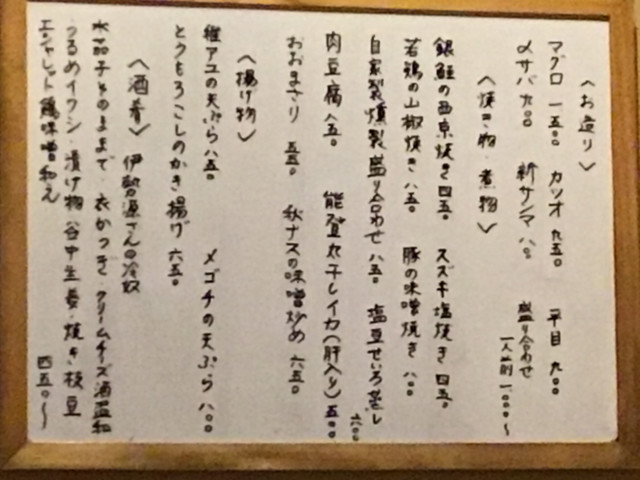 〈お造り〉
マグロ 一五〇 カツオ 九五〇 平目 九〇〇
〆サバ 九〇〇 新サンマ 八〇〇 盛り合わせ 一人前 一〇〇〇〜
〈焼き物・煮物〉
銀鮭の西京焼き 四五〇 スズキ塩焼き 四五〇
若鶏の山椒焼き 八五〇 豚の味噌焼き 八〇〇
自家製燻製盛り合わせ 八五〇 塩豆せいろ蒸し 六〇〇
肉豆腐 八五〇 能登丸干しイカ(肝入り) 五〇〇
おおまさり 五五〇 秋ナスの味噌炒め 六五〇
〈揚げ物〉
稚アユの天ぷら 八五〇 メゴチの天ぷら 八〇〇
とうもろこしのかき揚げ 六五〇
〈酒肴〉 伊勢源さんの冷奴
水茄子そのままで・衣かつぎ・クリームチーズ酒盗和
うるめイワシ・漬け物・谷中生姜・焼き枝豆
エシャレット鶏味噌和え 四五〇〜